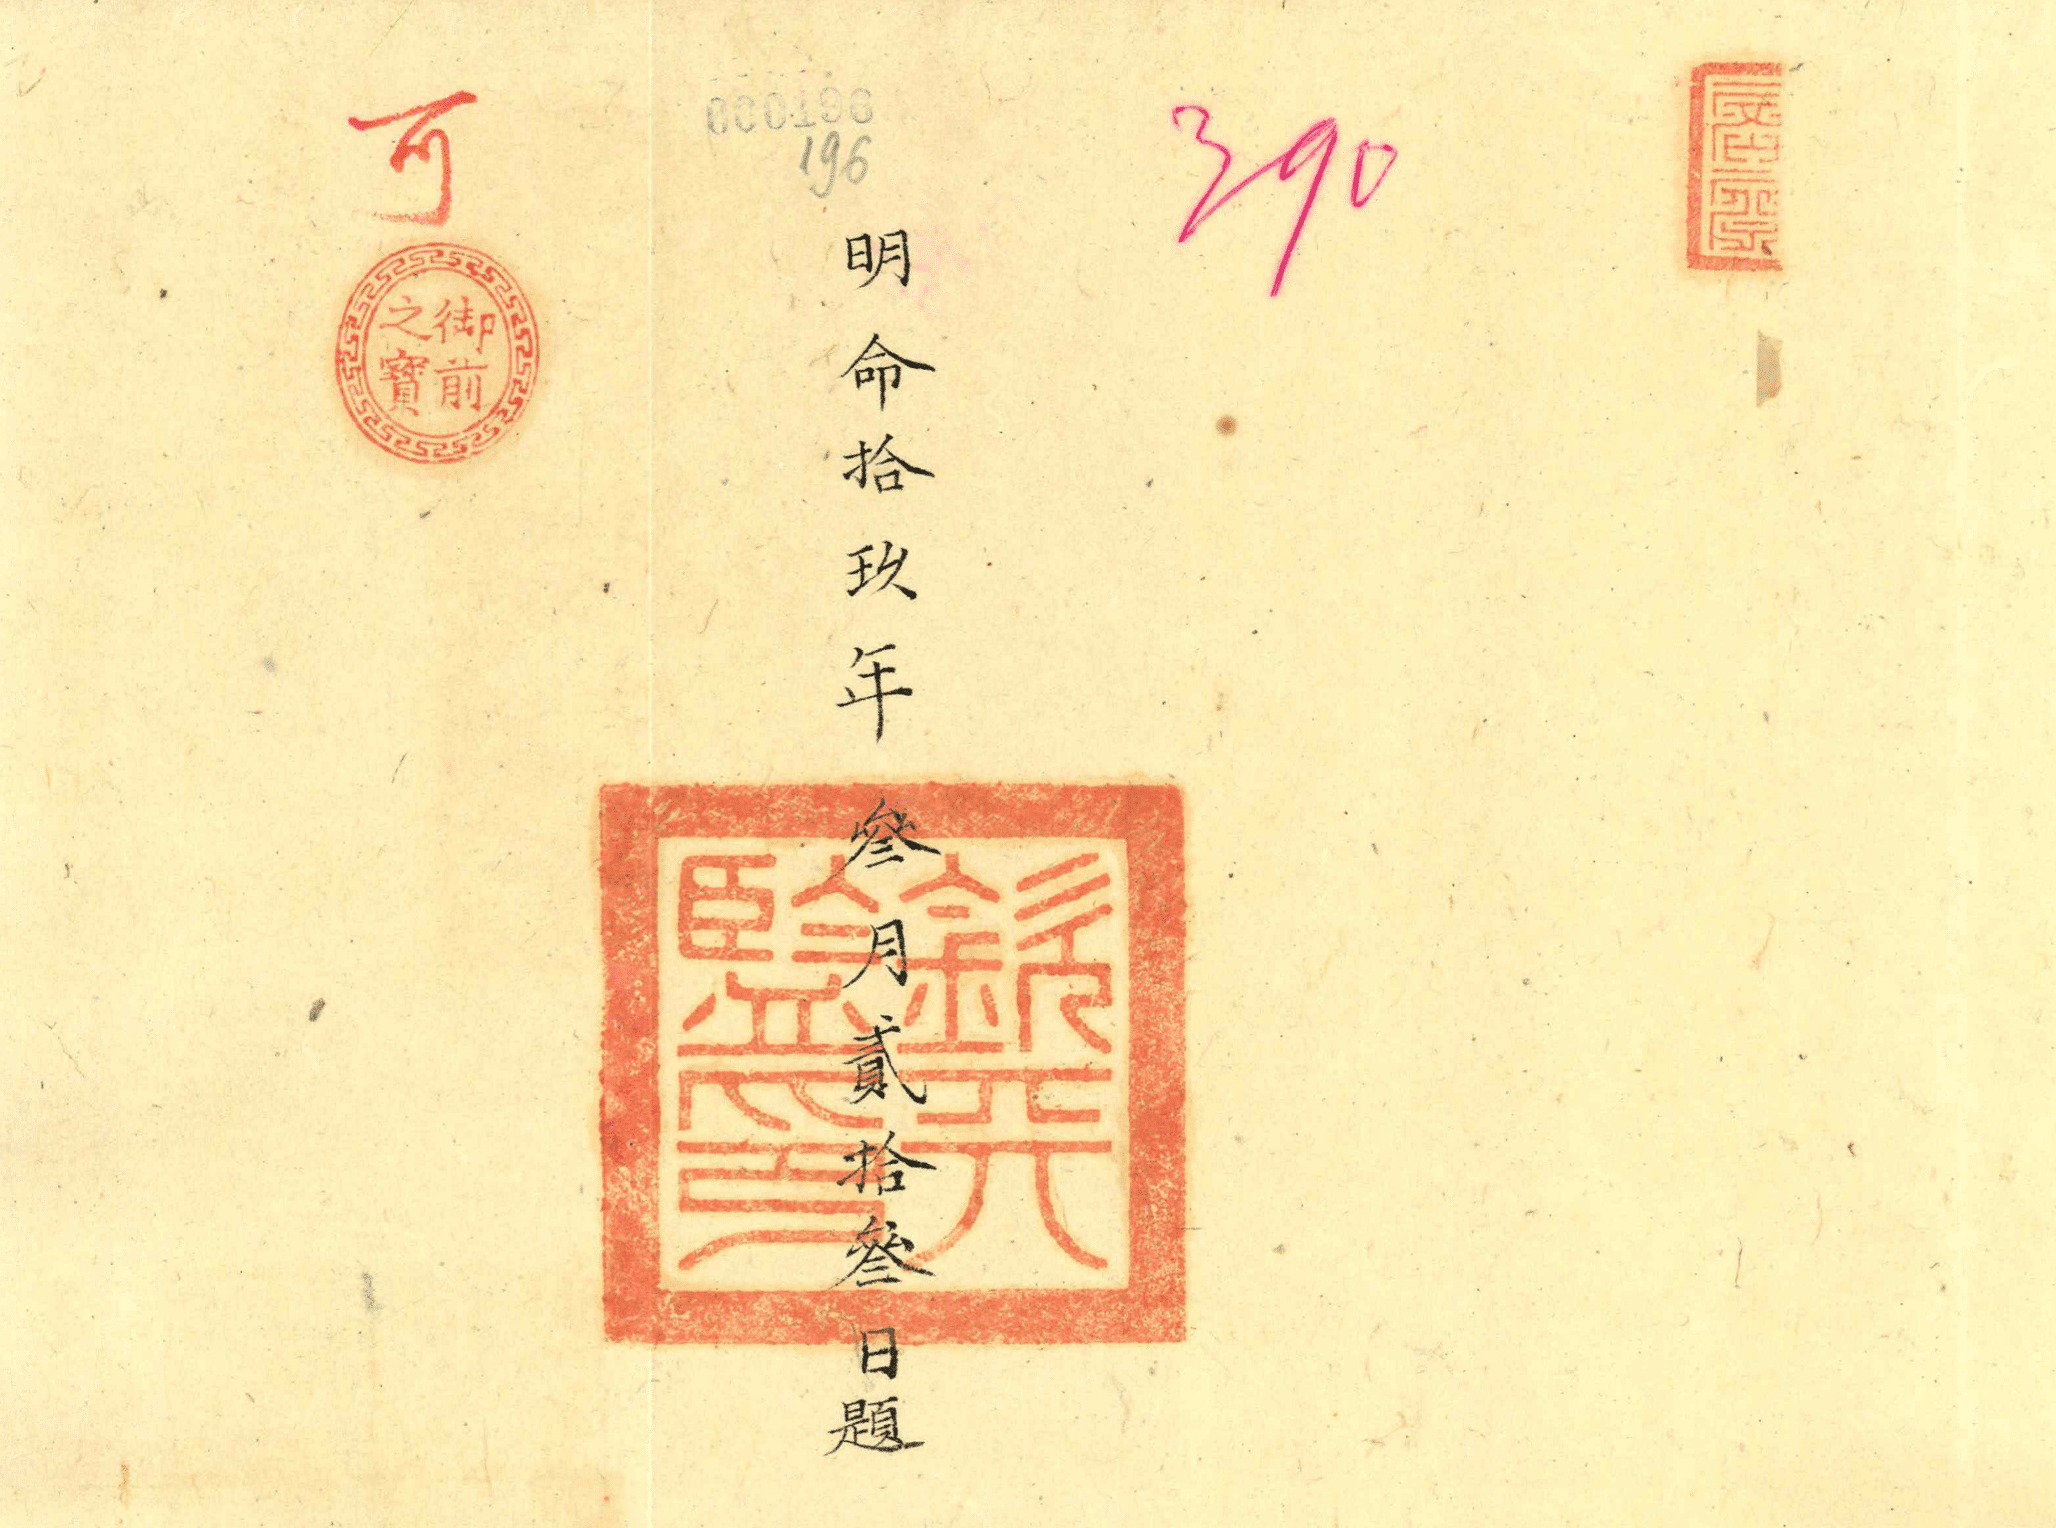 390
000196
196
明命拾玖年叄月貳拾叄日題
欽天
監印
可
御前
之寶